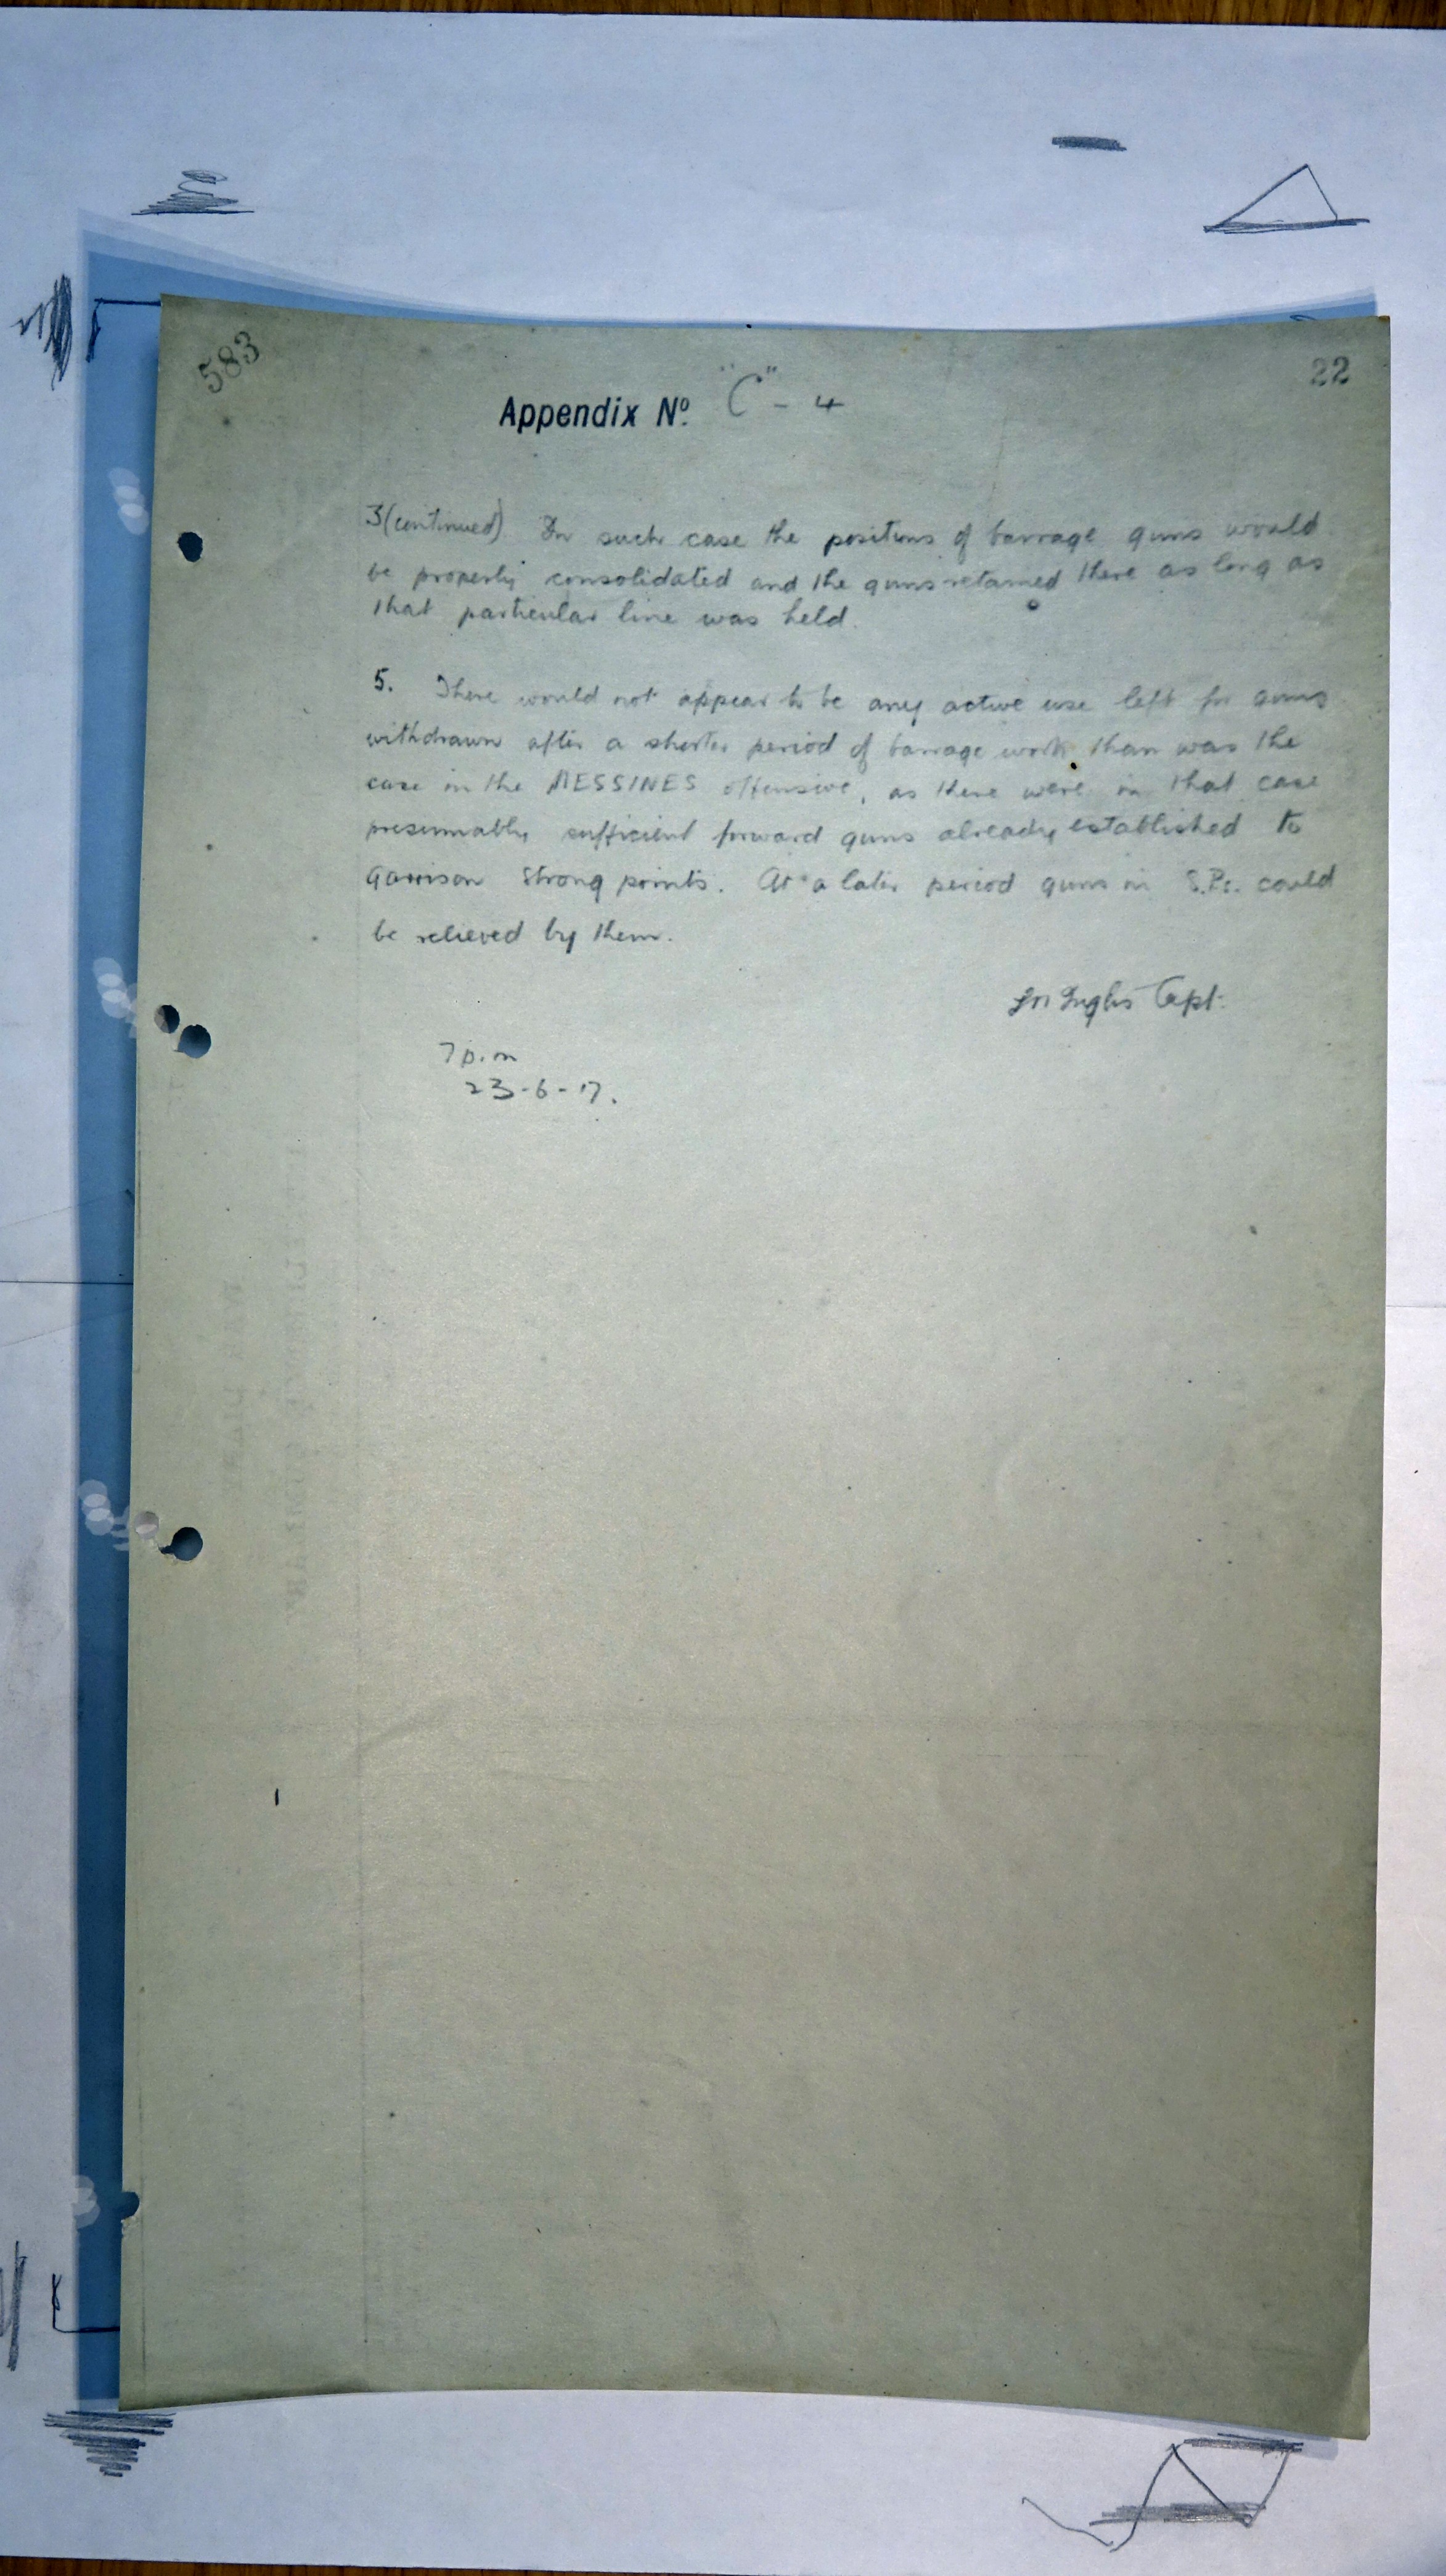 583
22
Appendix Nº "C" - 4
3(continued) In such case the positions of barrage guns would
be properly consolidated and the guns retained there as long as
that particular line was held.
5. There would not appear to be any active use left for guns
withdrawn after a shorter period of barrage work than was the
case in the MESSINES offensive, as there were in that case
presumably sufficient forward guns already established to
garrison strong points. At a later period guns in S.Ps. could
be relieved by them.
Inglis Capt.
7 p.m
23-6-17.